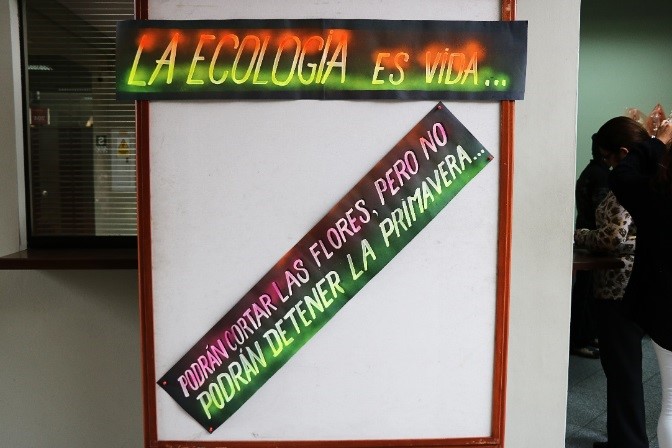 LA ECOLOGÍA ES VIDA...
PODRÁN CORTAR LAS FLORES, PERO NO
PODRÁN DETENER LA PRIMAVERA...